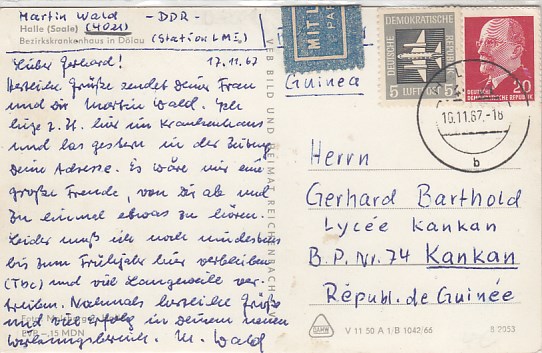 Martin Wald
Halle (Saale) (4021) -DDR-
Bezirkskrankenhaus in Dölau (Station LME)
17.11.67
Lieber Gerhard!
Herzliche Grüße sendet Deiner Frau
und Dir Martin Wald. Ich
liege z. Zt. hier im Krankenhaus
und las gestern in der Zeitung
Deine Adresse. Es wäre mir eine
große Freude, von Dir ab und
zu einmal etwas zu hören.
Leider muß ich noch mindestens
bis zum Frühjahr hier verbleiben
(Tbc) und viel Langeweile ver-
treiben. Nochmals herzliche Grüße
und viel Erfolg in Deinem neuen
Wirkungsbereich. M. Wald
EVP -,15 MDN
VEB BILD UND HEIMAT REICHENBACH
MIT L
PAR
Guinea
DEUTSCHE DEMOKRATISCHE REPUBLIK
5 LUFTPOST 5
20
DEUTSCHE DEMOKRATISCHE REPUBLIK
16.11.67.-18
b
Herrn
Gerhard Barthold
Lycée Kankan
B.P. Nr. 74 Kankan
Républ. de Guinée
V 11 50 A 1/B 1042/66
8 2053